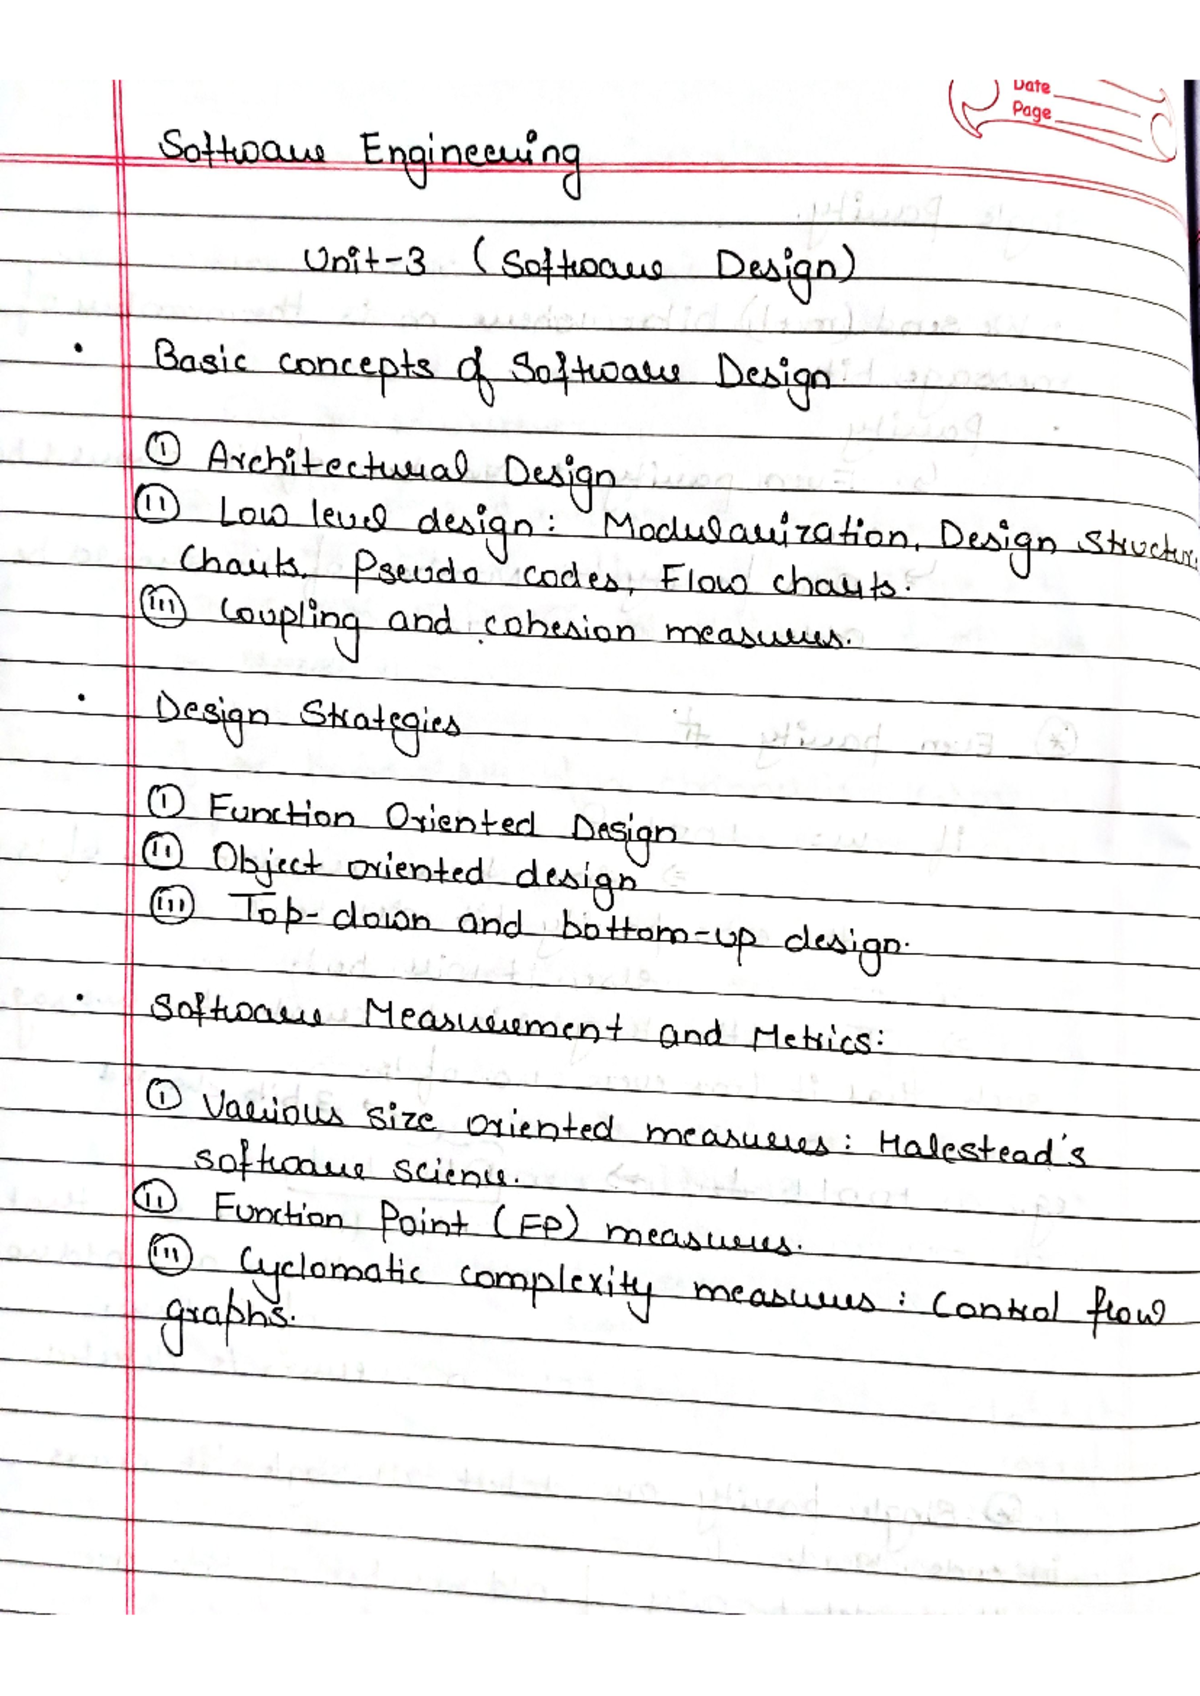 Date
Page
Software Engineering
Unit-3 (Software Design)
• Basic concepts of Software Design
(i) Architectural Design
(ii) Low level design: Modularization, Design Structur
Charts, Pseudo codes, Flow charts.
(iii) Coupling and cohesion measures.
• Design Strategies
(i) Function Oriented Design
(ii) Object oriented design
(iii) Top-down and bottom-up design.
• Software Measurement and Metrics:
(i) Various size oriented measures: Halestead's
software science.
(ii) Function Point (FP) measures.
(iii) Cyclomatic complexity measures: Control flow
graphs.